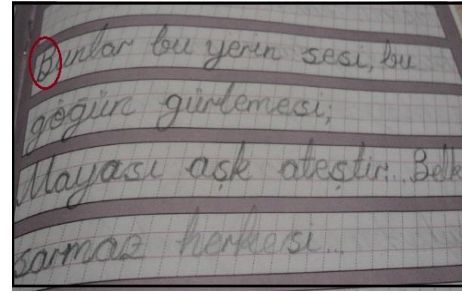 Bunlar bu yerin sesi, bu
göğün gürlemesi;
Mayası aşk ateştir.. Belk
sarmaz herkesi...